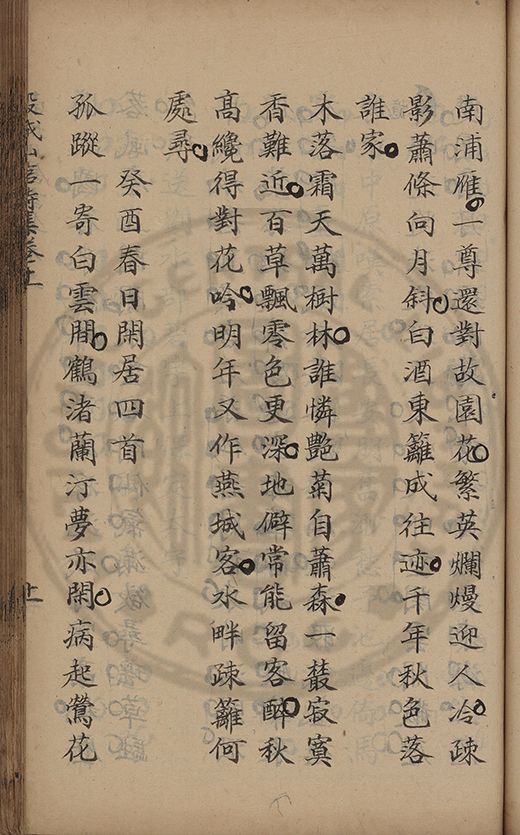 南浦雁一尊還對故園花繁英爛熳迎人冷疎
影蕭條向月斜白酒東籬成往迹千年秋色落
誰家
木落霜天萬樹林誰憐艷菊自蕭森一叢寂寞
香難近百草飄零色更深地僻常能留客醉秋
高纔得對花吟明年又作燕城客水畔疎籬何
處尋
癸酉春日閑居四首
孤蹤一寄白雲間鶴渚蘭汀夢亦閑病起鶯花